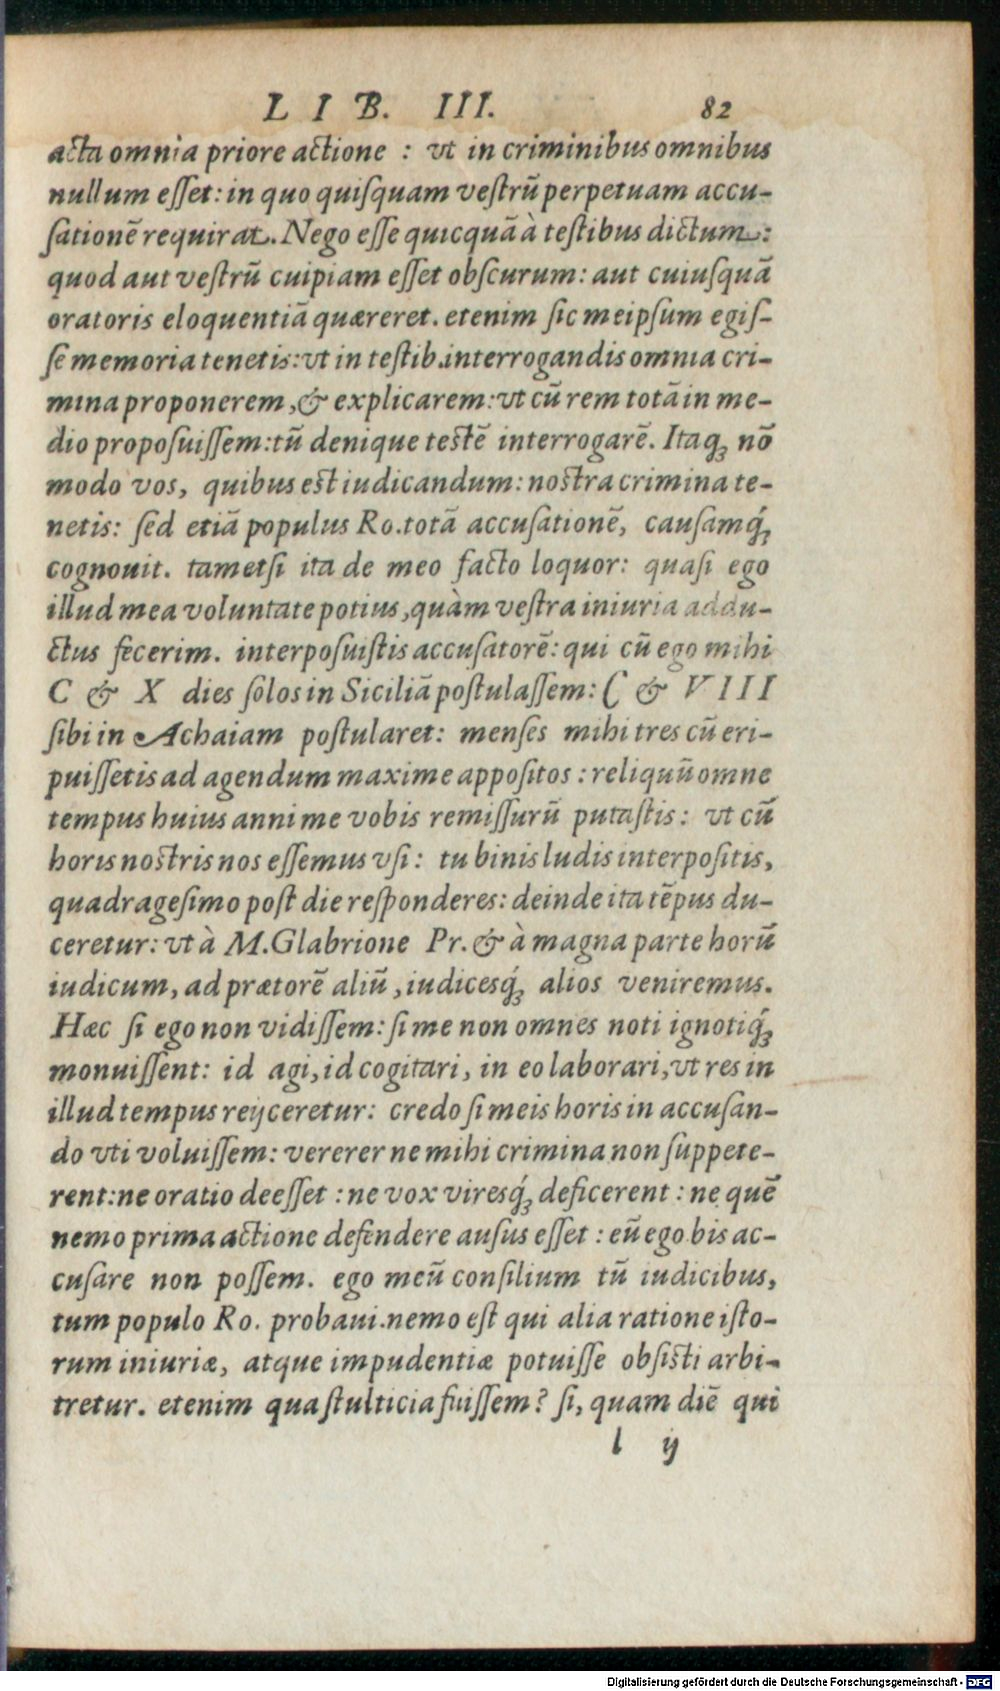 L I B. III. 82
acta omnia priore actione : vt in criminibus omnibus
nullum eſſet: in quo quiſquam veſtrū perpetuam accu-
ſationē requirat. Nego eſſe quicquā à teſtibus dictum:
quod aut veſtrū cuipiam eſſet obſcurum: aut cuiuſquā
oratoris eloquentiā quæreret. etenim ſic meipſum egiſ-
ſe memoria tenetis: vt in teſtib. interrogandis omnia cri-
mina proponerem, & explicarem: vt cū rem totā in me-
dio propoſuiſſem: tū denique teſtē interrogarē. Itaq; nō
modo vos, quibus eſt iudicandum: noſtra crimina te-
netis: ſed etiā populus Ro. totā accuſationē, cauſamq́;
cognouit. tametſi ita de meo facto loquor: quaſi ego
illud mea voluntate potius, quàm veſtra iniuria addu-
ctus fecerim. interpoſuiſtis accuſatorē: qui cū ego mihi
C & X dies ſolos in Siciliā poſtulaſſem: C & VIII
ſibi in Achaiam poſtularet: menſes mihi tres cū eri-
puiſſetis ad agendum maxime appoſitos : reliquū omne
tempus huius anni me vobis remiſſurū putaſtis: vt cū
horis noſtris nos eſſemus vſi: tu binis ludis interpoſitis,
quadrageſimo poſt die reſponderes: deinde ita tēpus du-
ceretur: vt à M. Glabrione Pr. & à magna parte horū
iudicum, ad prætorē aliū, iudicesq́; alios veniremus.
Hæc ſi ego non vidiſſem: ſi me non omnes noti ignotiq́;
monuiſſent: id agi, id cogitari, in eo laborari, vt res in
illud tempus reijceretur: credo ſi meis horis in accuſan-
do vti voluiſſem: vererer ne mihi crimina non ſuppete-
rent: ne oratio deeſſet : ne vox viresq́; deficerent : ne quē
nemo prima actione defendere auſus eſſet : eū ego bis ac-
cuſare non poſſem. ego meū conſilium tū iudicibus,
tum populo Ro. probaui. nemo eſt qui alia ratione iſto-
rum iniuriæ, atque impudentiæ potuiſſe obſiſti arbi-
tretur. etenim qua ſtulticia fuiſſem? ſi, quam diē qui
l ij
Digitalisierung gefördert durch die Deutsche Forschungsgemeinschaft - DFG